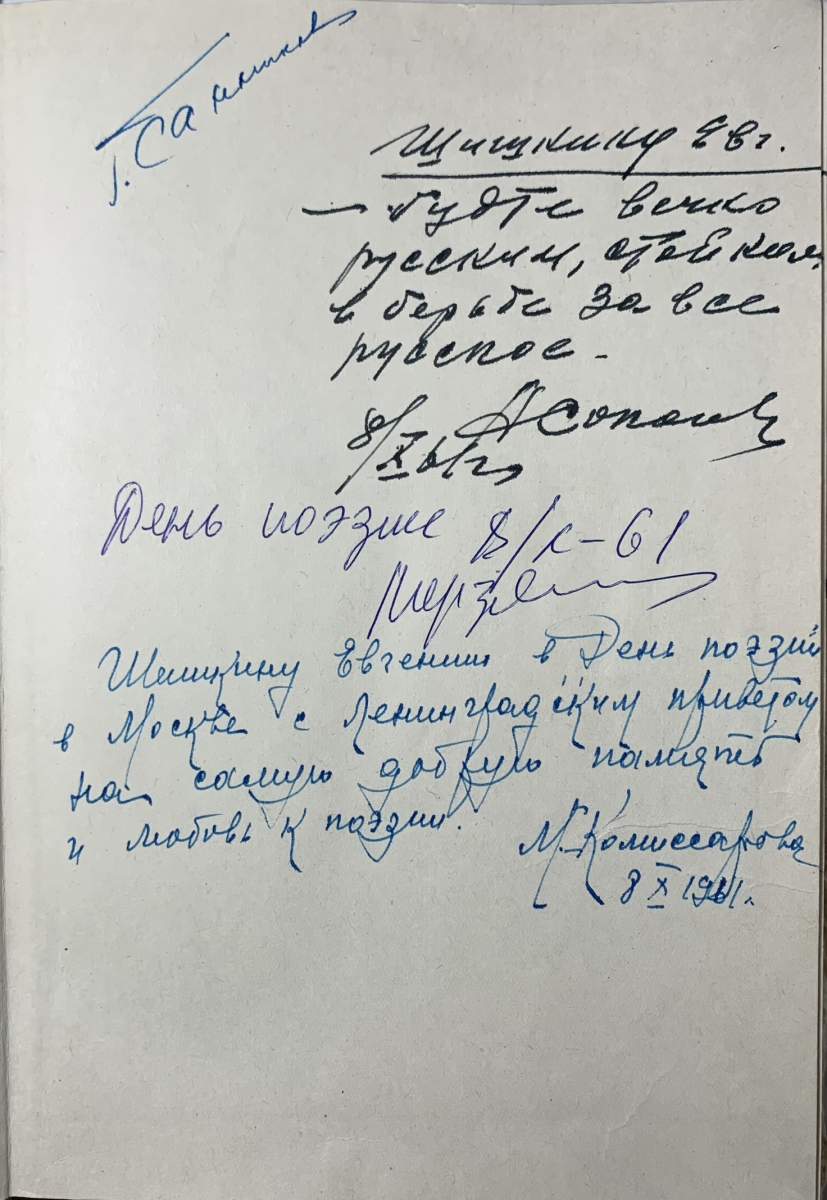 Г. Санников
Шишкину Евг.
— будьте вечно
русским, стойким
в борьбе за все
русское.
8/X 61 г.
День поэзии 8/X-61
Шишкину Евгению в День поэзии
в Москве с Ленинградским приветом
на самую добрую память
и любовь к поэзии.
М. Комиссарова
8 X 1961.